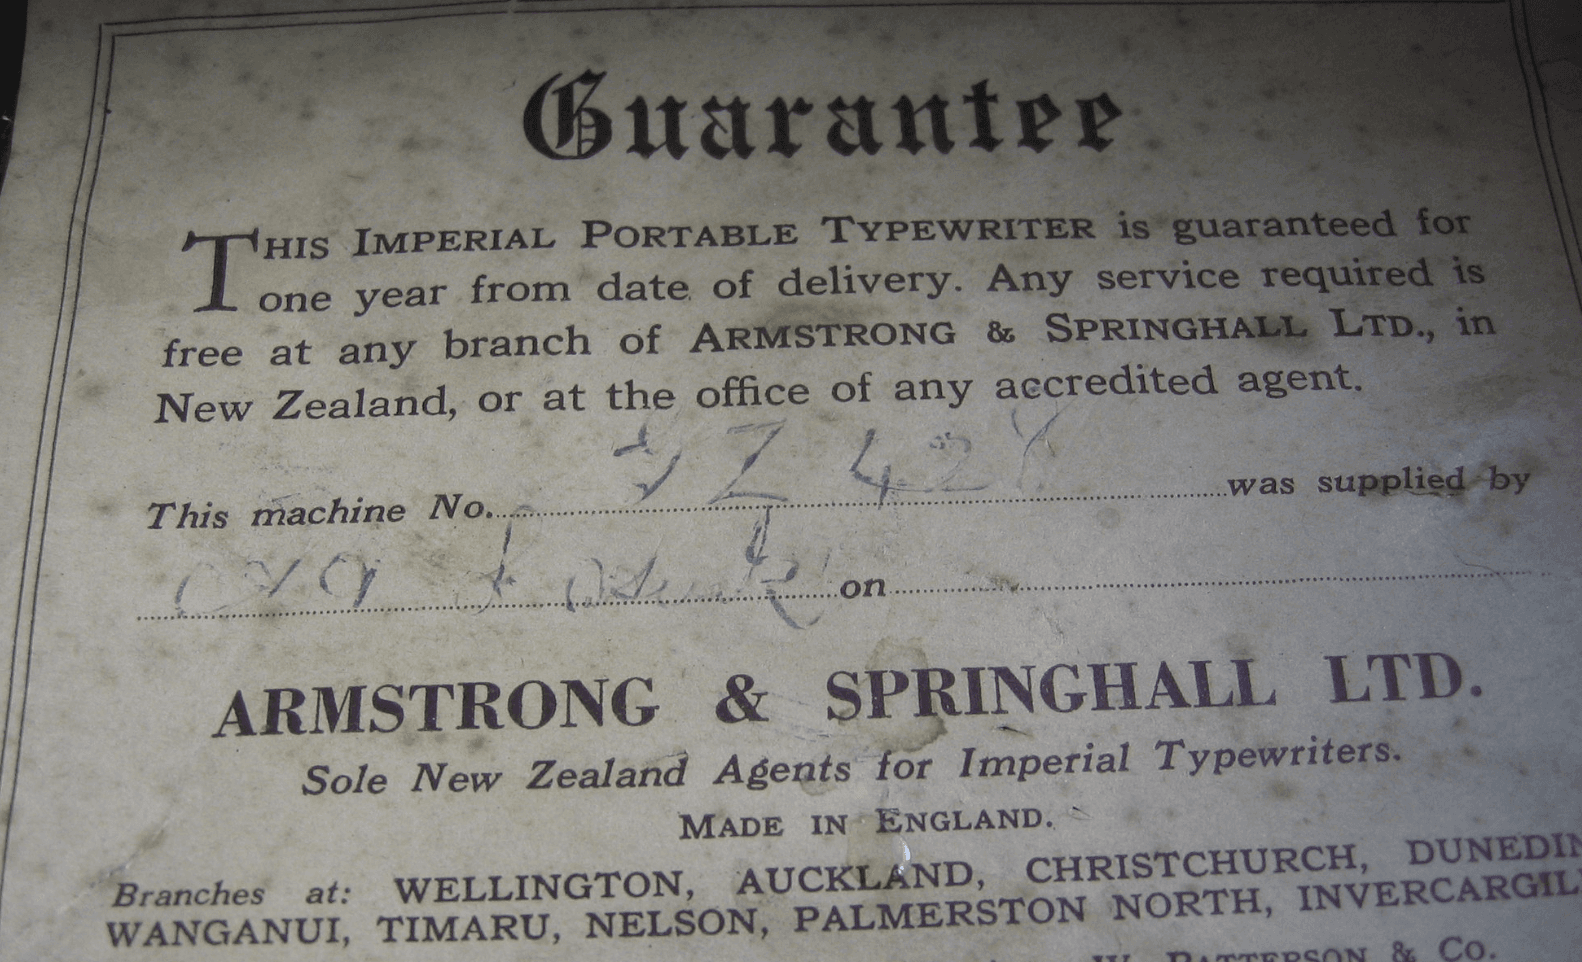 Guarantee
THIS IMPERIAL PORTABLE TYPEWRITER is guaranteed for
one year from date of delivery. Any service required is
free at any branch of ARMSTRONG & SPRINGHALL LTD., in
New Zealand, or at the office of any accredited agent.
This machine No. was supplied by
on
ARMSTRONG & SPRINGHALL LTD.
Sole New Zealand Agents for Imperial Typewriters.
MADE IN ENGLAND.
Branches at: WELLINGTON, AUCKLAND, CHRISTCHURCH, DUNEDIN
WANGANUI, TIMARU, NELSON, PALMERSTON NORTH, INVERCARGIL
& Co.